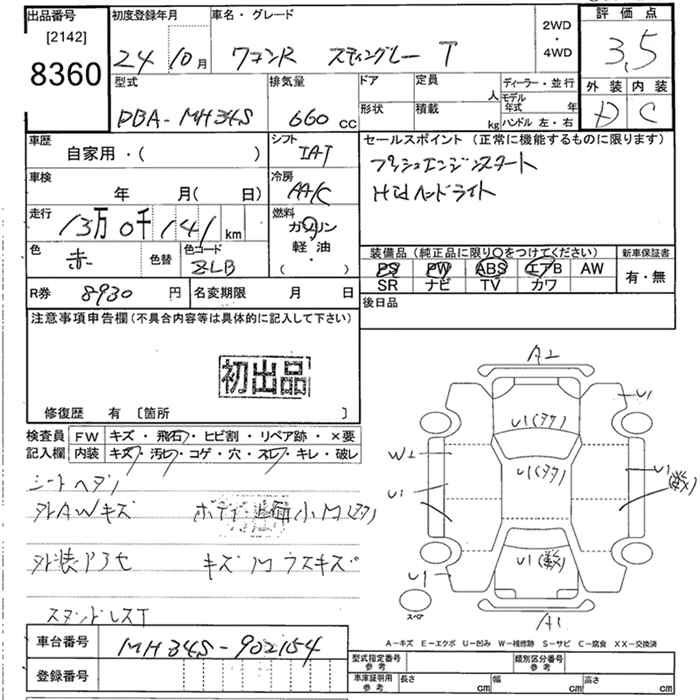 出品番号 初度登録年月 車名・グレード 2WD・4WD 評価点
[2142] 24 10月 ワゴンR スティングレー T 3.5
8360 型式 排気量 ドア 定員 人 ディーラー・並行 外装 内装
DBA-MH34S 660cc 形状 積載 kg モデル年式 年 D C
ハンドル 左・右
車歴 シフト セールスポイント (正常に機能するものに限ります)
自家用・( ) IAT プッシュエンジンスタート
車検 冷房 Hidヘッドライト
年 月( 日) AA/C
走行 13万0千141km 燃料
ガソリン
軽油
( ・ )
色 赤 色替 色コード ZLB
装備品 (純正品に限り○をつけてください) 新車保証書
PS PW ABS エアB AW 有・無
SR ナビ TV カワ
R券 8930 円 名変期限 月 日 後日品
注意事項申告欄(不具合内容等は具体的に記入して下さい)
初出品
修復歴 有 [箇所 ]
検査員 FW キズ・飛石・ヒビ割・リペア跡・×要
記入欄 内装 キズ・汚れ・コゲ・穴・スレ・キレ・破レ
シートヘタリ
外AWキズ ボディ 小凹(多タ)
外装アセ
スタンドレスT
車台番号 MH34S-902154
登録番号
A2
U1
U1(タタ)
W2
U1(タタ)
U1
U1(数)
U1(数)
U1
スペア
A1
A-キズ E-エクボ U-凹み W-補修跡 S-サビ C-腐食 XX-交換済
型式指定番号 参考 類別区分番号 参考
車庫証明用 参考 長さ cm 幅 cm 高さ cm